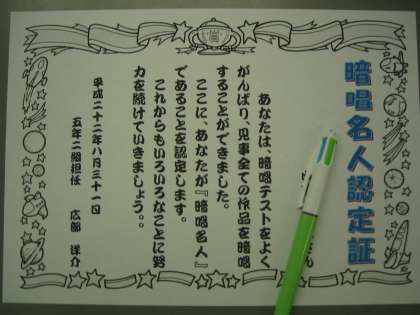 暗唱名人認定証
さん
あなたは、暗唱テストをよく
がんばり、見事全ての作品を暗唱
することができました。
ここに、あなたが『暗唱名人』
であることを認定します。
これからもいろいろなことに努
力を続けていきましょう。
平成二十二年八月三十一日
五年二組担任 広部 洋介